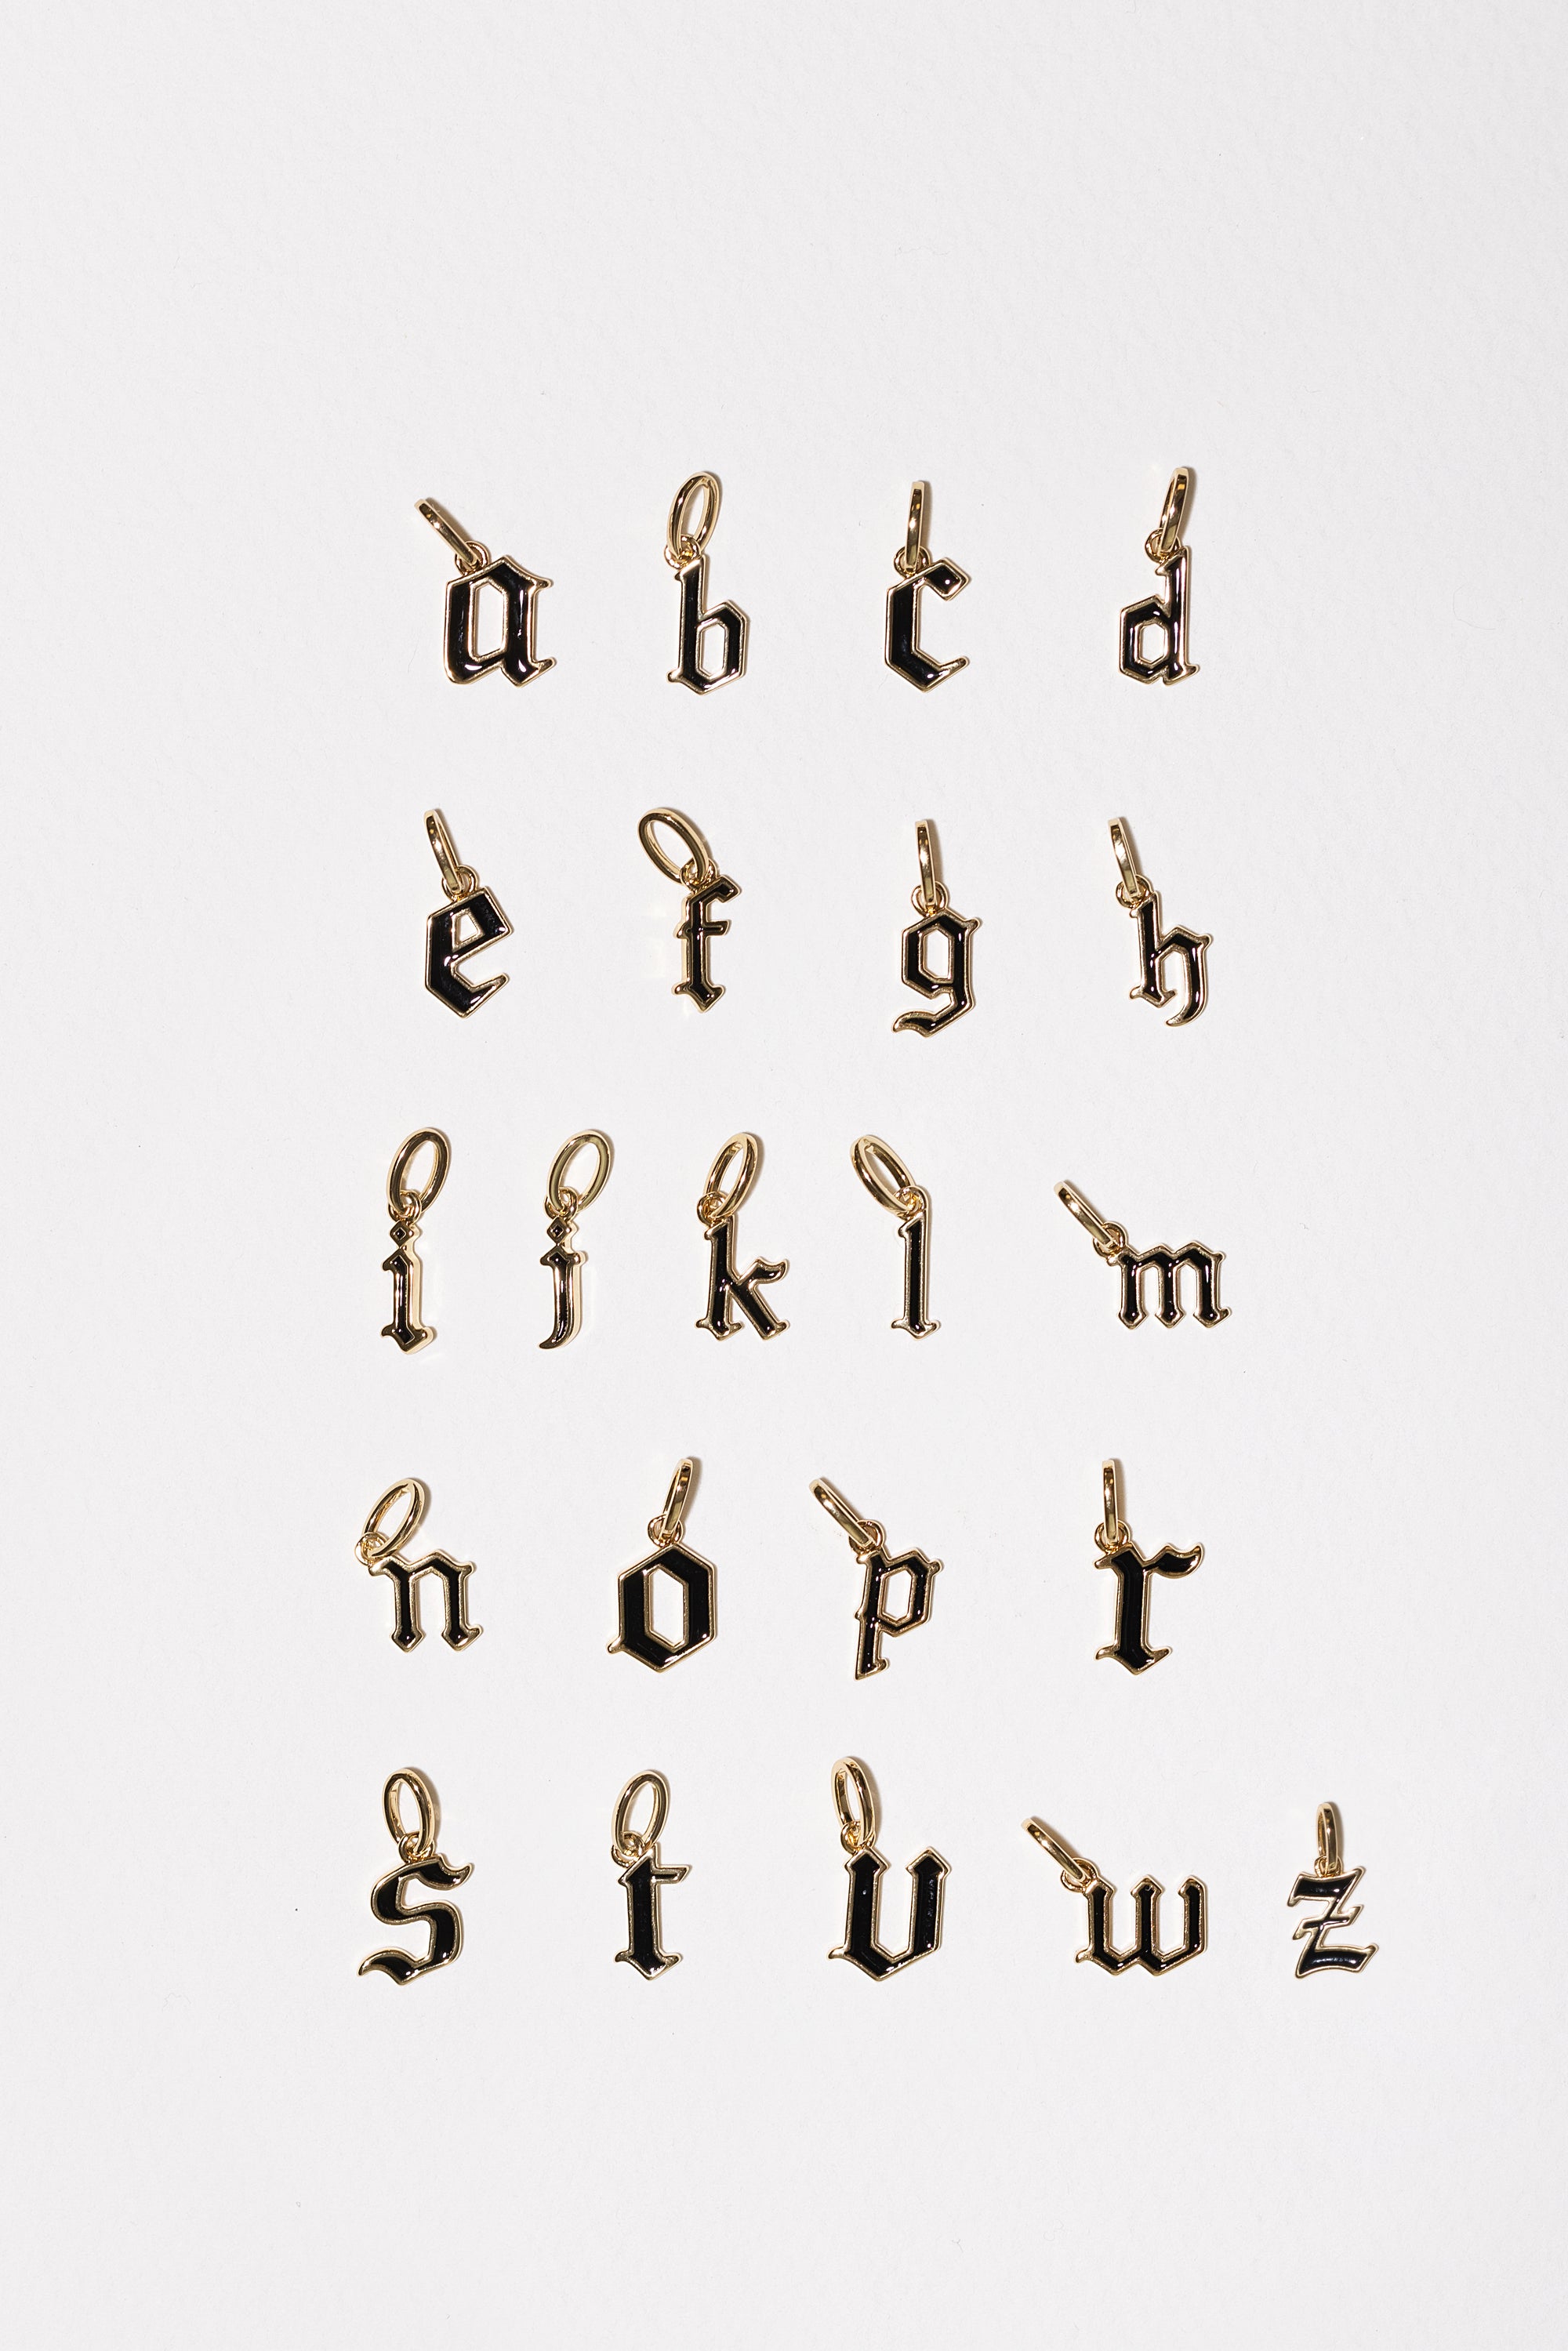 a b c d
e f g h
i j k l m
n o p r
s t u w z